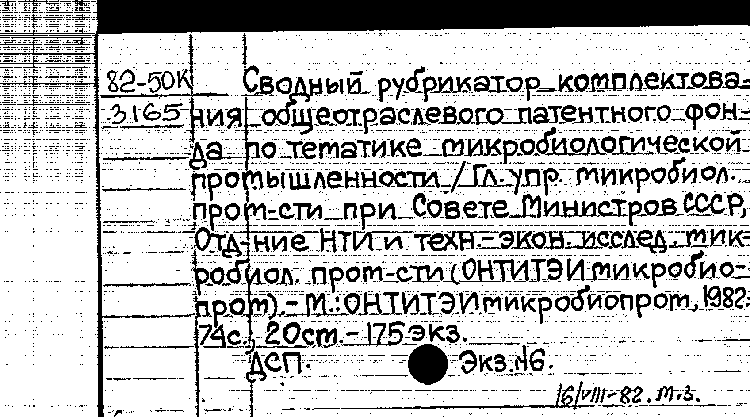 82-50К Сводный рубрикатор комплектова-
3165 ния общеотраслевого патентного фон-
да по тематике микробиологической
промышленности / Гл. упр. микробиол.
пром-сти при Совете Министров СССР,
Отд-ние НТИ и техн.-экон. исслед. мик-
робиол. пром-сти (ОНТИТЭИмикробио-
пром). - М.: ОНТИТЭИмикробиопром, 1982.
74с., 20см. - 175 экз.
ДСП. Экз. №6.
16/VIII-82. м.з.